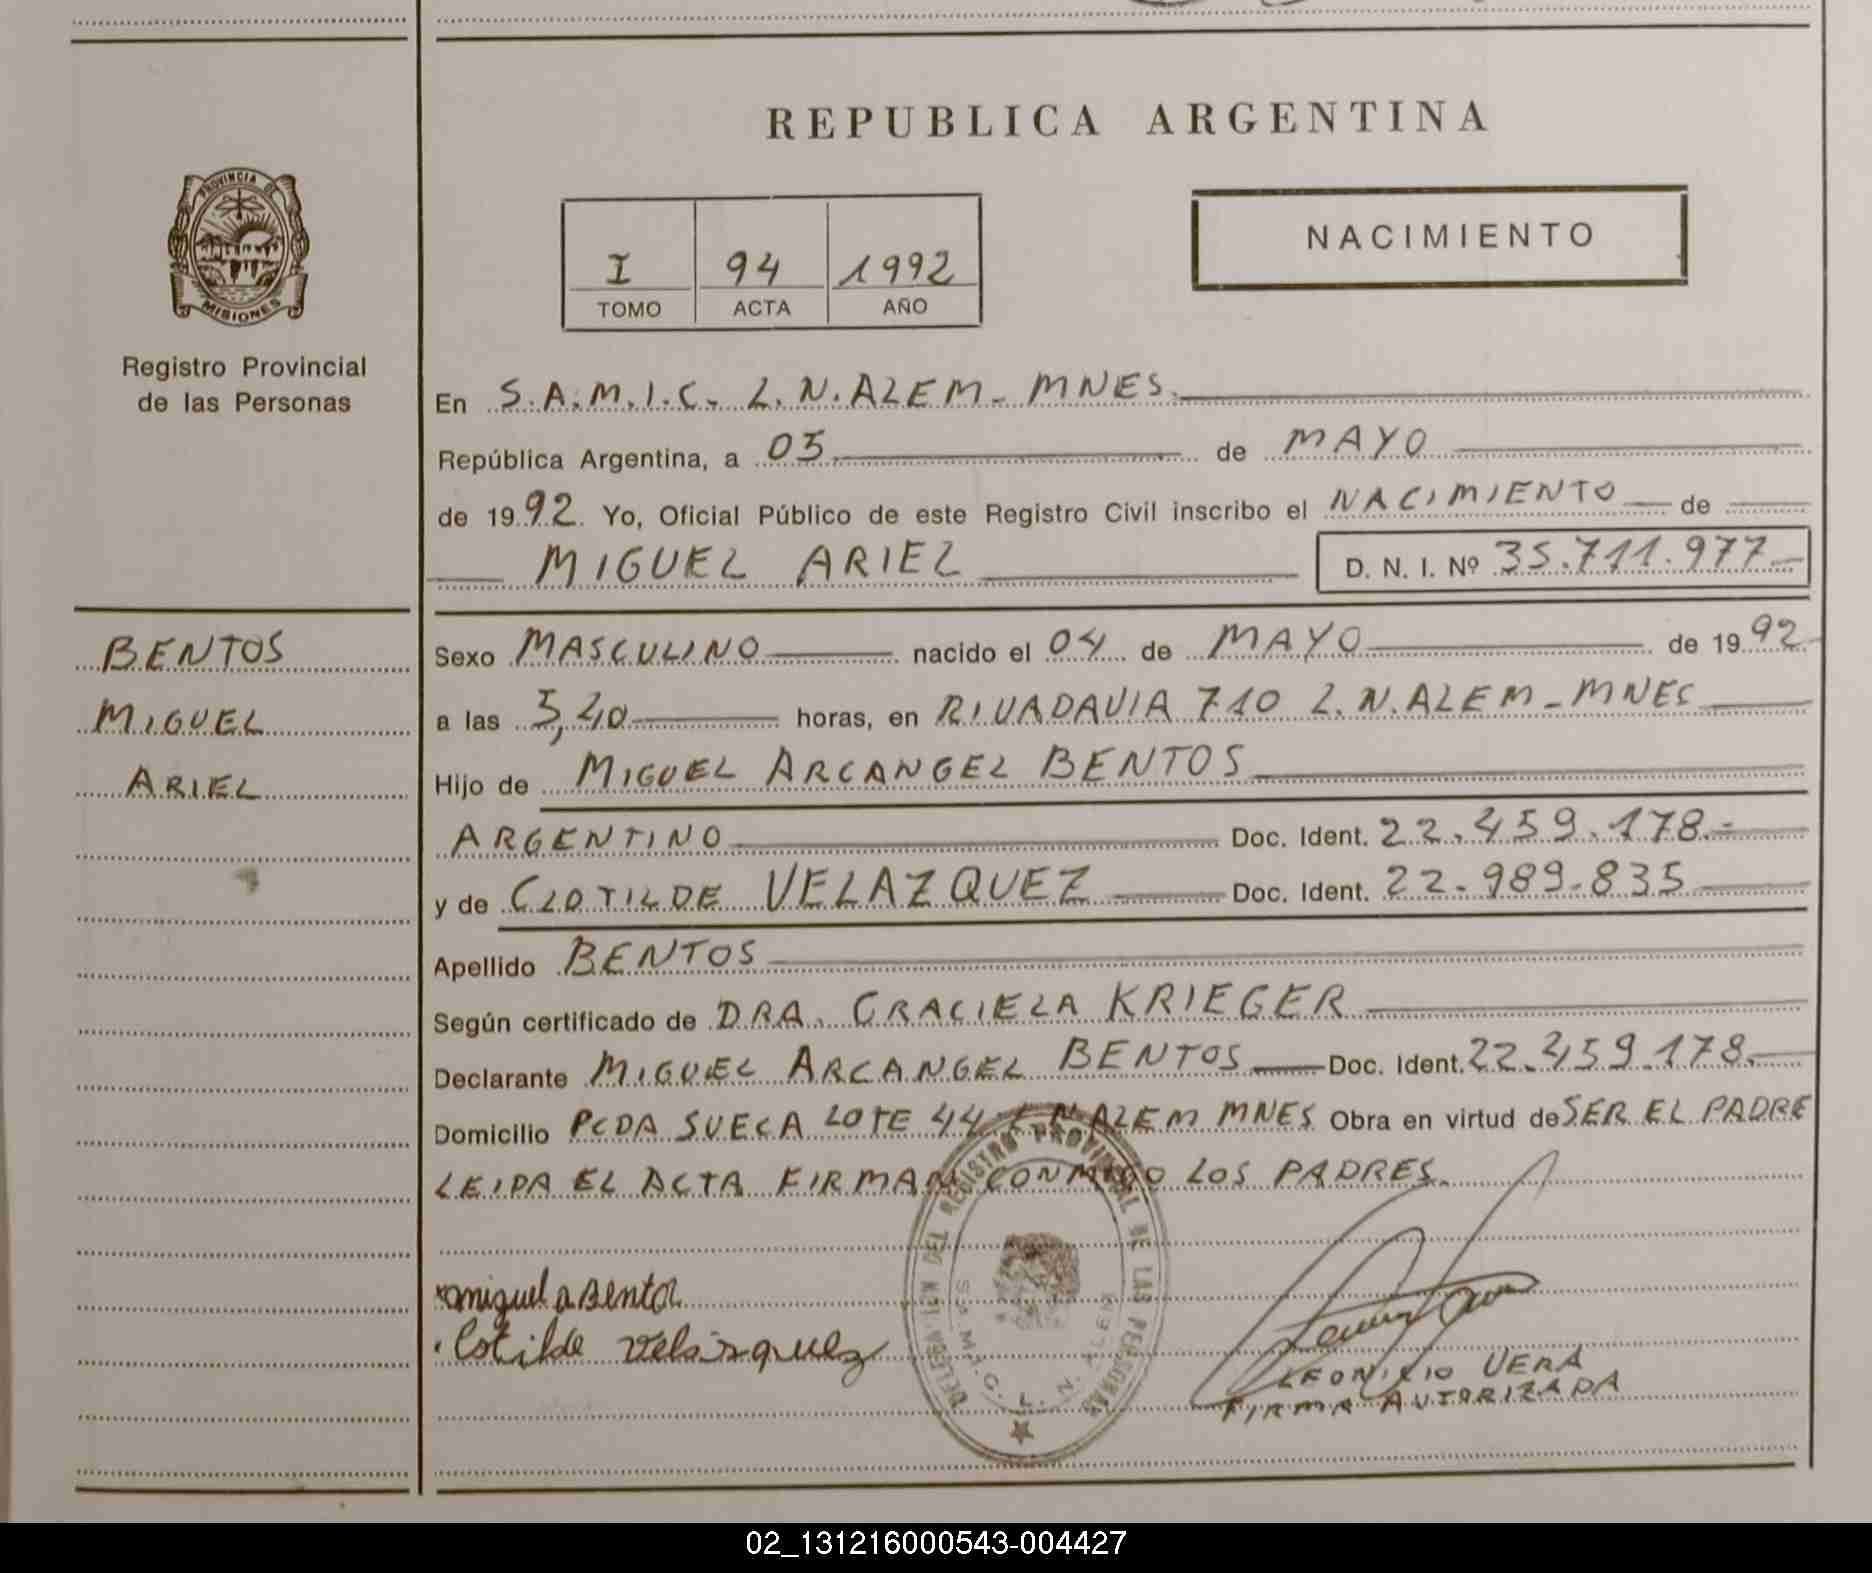 REPUBLICA ARGENTINA
PROVINCIA DE
MISIONES
Registro Provincial
de las Personas
I 94 1992
TOMO ACTA AÑO
NACIMIENTO
En S.A.M.I.C. L.N.ALEM - MNES.
República Argentina, a 05 de MAYO
de 1992. Yo, Oficial Público de este Registro Civil inscribo el NACIMIENTO de
MIGUEL ARIEL D. N. I. Nº 35.711.977
BENTOS
MIGUEL
ARIEL
Sexo MASCULINO nacido el 04 de MAYO de 1992
a las 5,40 horas, en RIVADAVIA 710 L.N.ALEM - MNES
Hijo de MIGUEL ARCANGEL BENTOS
ARGENTINO Doc. Ident. 22.459.178.-
y de CLOTILDE VELAZQUEZ Doc. Ident. 22.989.835
Apellido BENTOS
Según certificado de DRA. GRACIELA KRIEGER
Declarante MIGUEL ARCANGEL BENTOS Doc. Ident. 22.459.178.
Domicilio PCDA SUECA LOTE 44 L N ALEM MNES Obra en virtud de SER EL PADRE
LEIDA EL ACTA FIRMAN CONMIGO LOS PADRES.
miguel a Bentos
Clotilde Velásquez
DELEGACION DEL REGISTRO PROVINCIAL DE LAS PERSONAS
S.A.M.I.C. L. N. ALEM
LEONICIO VERA
FIRMA AUTORIZADA
02_131216000543-004427